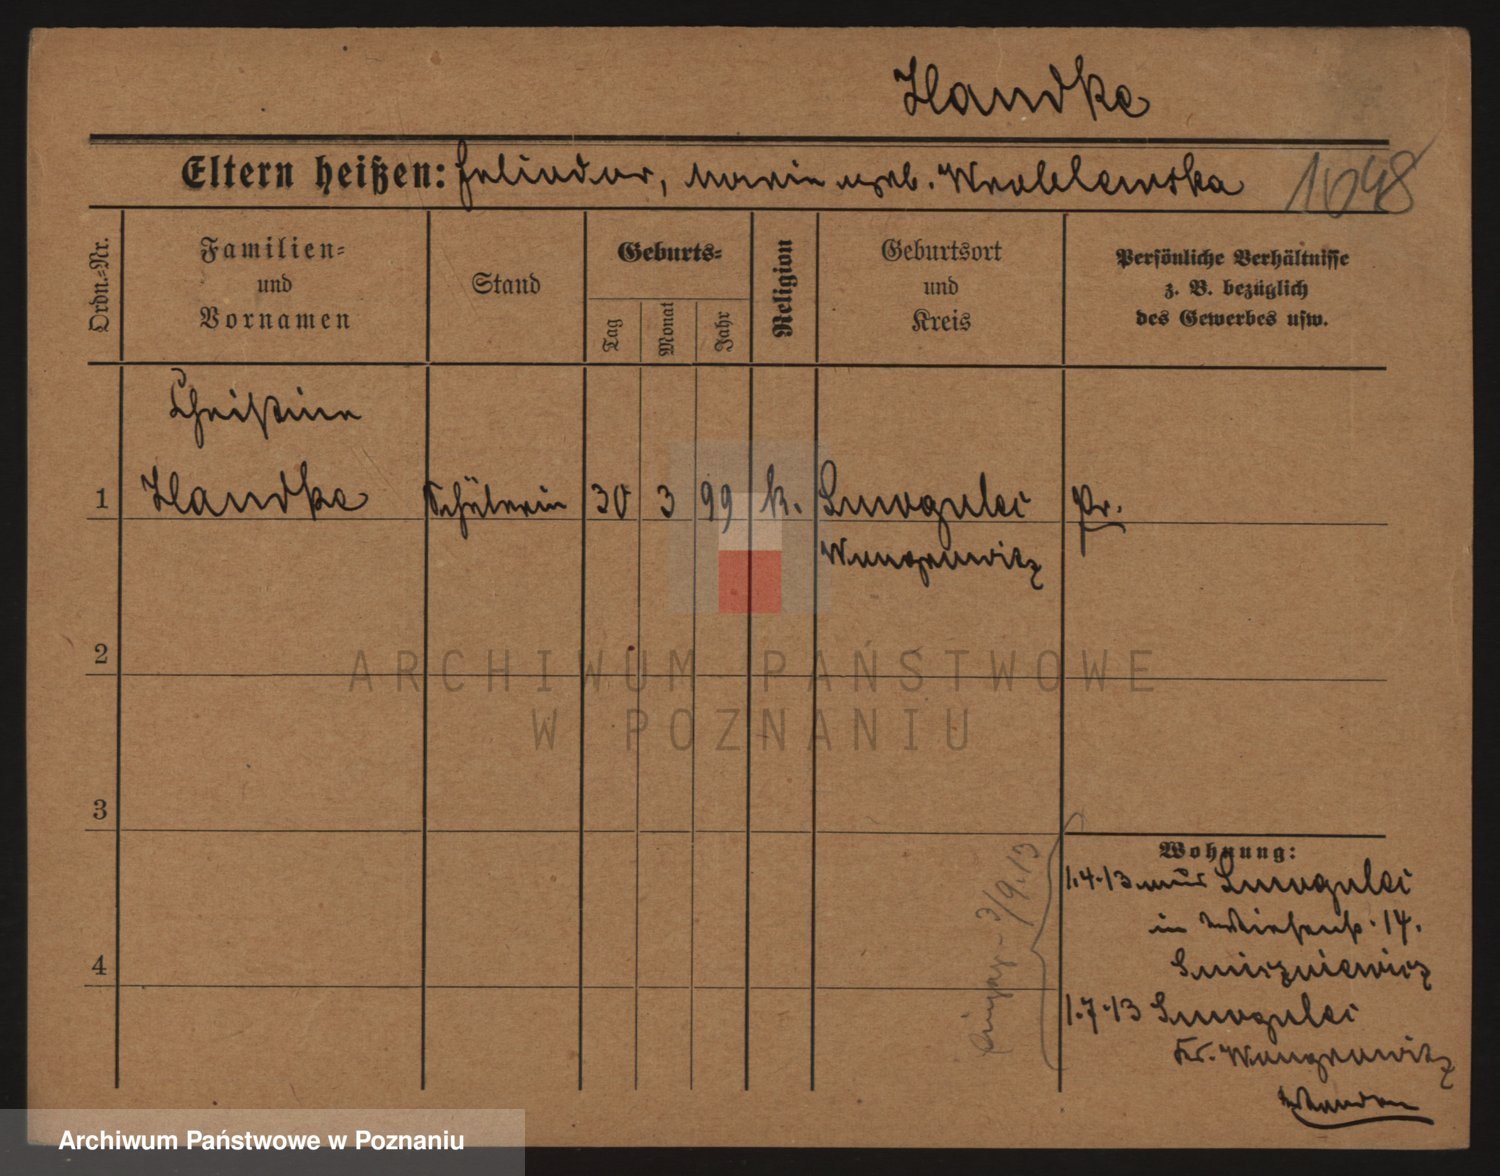 Handke
Eltern heißen: Felicdor, Marie geb. Wroblewska 1048
Ordn.-Nr.
Familien-
und
Vornamen
Stand
Geburts-
Tag
Monat
Jahr
Religion
Geburtsort
und
Kreis
Persönliche Verhältnisse
z. B. bezüglich
des Gewerbes usw.
Christine
1 Handke Schülerin 30 3 99 k. Smogulec Pr.
Wongrowitz
2
ARCHIWUM PAŃSTWOWE
W POZNANIU
3
Wohnung:
1.4.13 aus Smogulec
in Wiesenst. 14.
4
Smiszniewicz
1.7.13 Smogulec
Kr. Wongrowitz
3/9.13
Archiwum Państwowe w Poznaniu